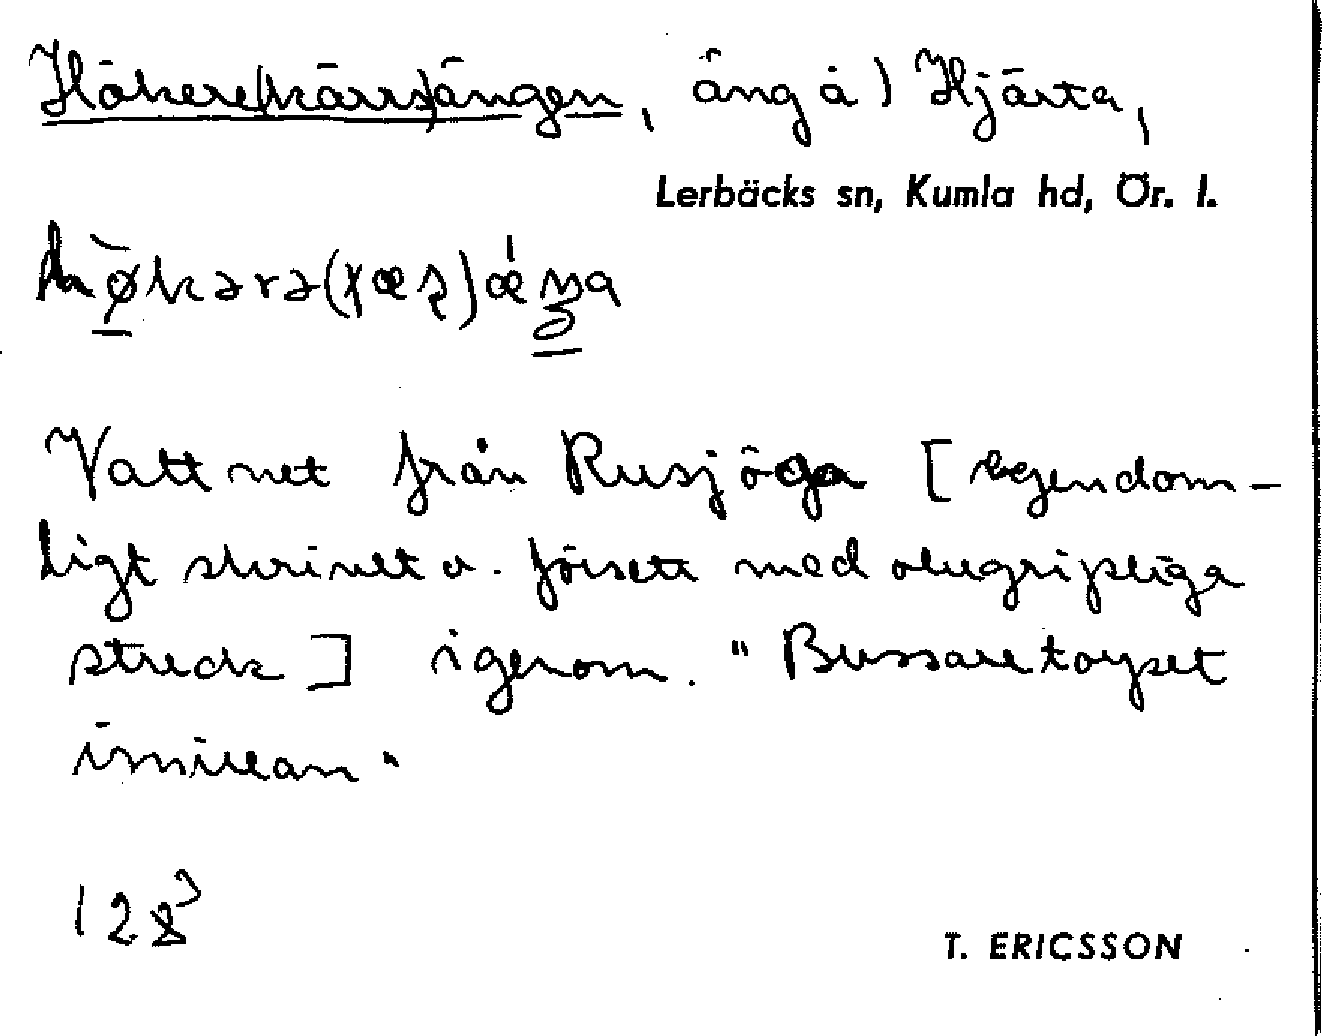 Hökere(kärrs)ängen, äng å) Hjärta,
Lerbäcks sn, Kumla hd, Ör. l.
Vattnet från Rusjöga [egendom-
ligt skrivet o. försett med obegripliga
streck] igenom. "Bussaretorpet
ismillan"
128³
T. ERICSSON